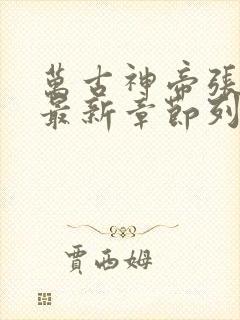 萬古神帝張
最新章節列
賈西姆